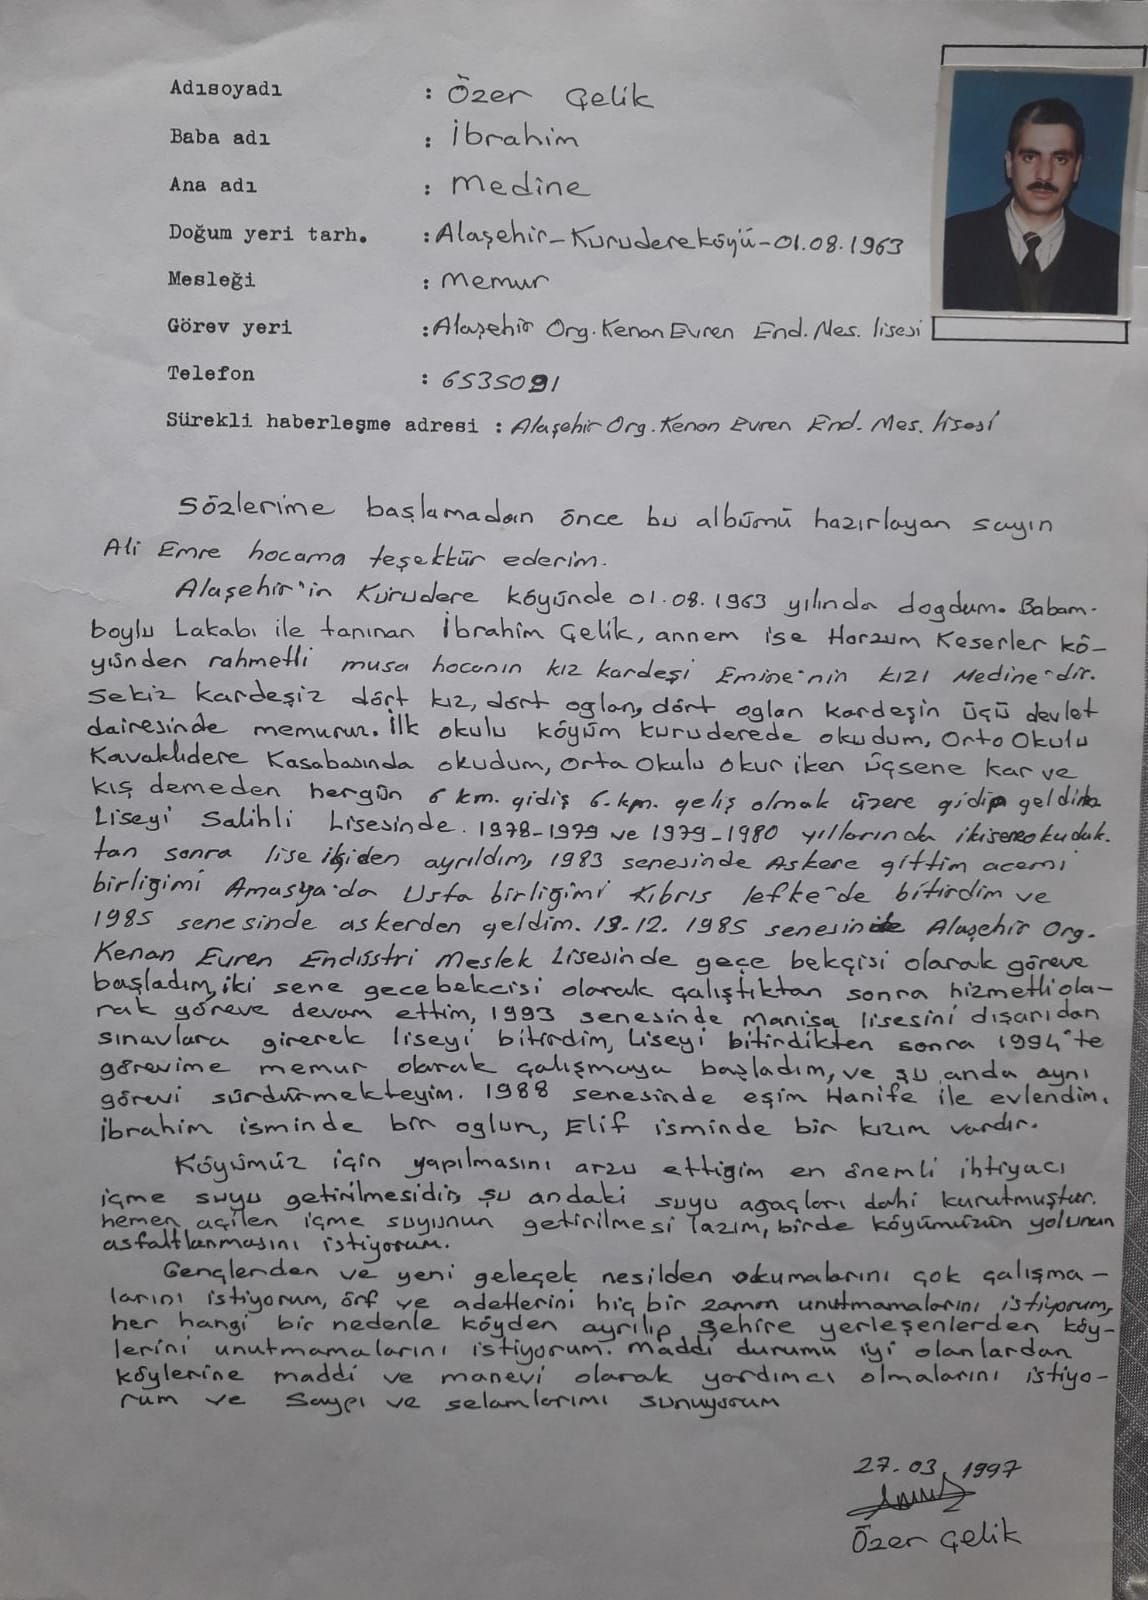 Adısoyadı : Özer Çelik
Baba adı : İbrahim
Ana adı : Medine
Doğum yeri tarh. : Alaşehir-Kurudereköyü-01.08.1963
Mesleği : Memur
Görev yeri : Alaşehir Org. Kenan Evren End. Mes. lisesi
Telefon : 6535091
Sürekli haberleşme adresi : Alaşehir Org. Kenan Evren End. Mes. lisesi
Sözlerime başlamadan önce bu albümü hazırlayan sayın
Ali Emre hocama teşekkür ederim.
Alaşehir'in Kurudere köyünde 01.08.1963 yılında dogdum. Babam-
boylu Lakabı ile tanınan İbrahim Çelik, annem ise Horzum Keserler kö-
yünden rahmetli musa hocanın kız kardeşi Emine'nin kızı Medine'dir.
Sekiz kardeşiz dört kız, dört oglan, dört oglan kardeşin üçü devlet
dairesinde memurur. İlk okulu köyüm kuruderede okudum, Orto Okulu
Kavaklıdere Kasabasında okudum, Orta Okulu okur iken üçsene kar ve
kış demeden hergün 6 km. gidiş 6.km. geliş olmak üzere gidip geldim
Liseyi Salihli Lisesinde. 1978-1979 ve 1979-1980 yıllarında ikisene okuduk.
tan sonra lise ikiden ayrıldım, 1983 senesinde Askere gittim acemi
birligimi Amasya'da Usta birliğimi Kıbrıs lefke'de bitirdim ve
1985 senesinde askerden geldim. 19.12.1985 senesinde Alaşehir Org.
Kenan Evren Endüstri Meslek Lisesinde geçe bekçisi olarak göreve
başladım, iki sene gece bekcisi olarak çalıştıktan sonra hizmetli ola-
rak göreve devam ettim, 1993 senesinde Manisa lisesini dışarıdan
sınavlara girerek liseyi bitirdim, Liseyi bitirdikten sonra 1994'te
görevime memur olarak çalışmaya başladım, ve şu anda aynı
görevi sürdürmekteyim. 1988 senesinde eşim Hanife ile evlendim.
İbrahim isminde bir oglum, Elif isminde bir kızım vardır.
Köyümüz için yapılmasını arzu ettigim en önemli ihtiyacı
içme suyu getirilmesidir, şu andaki suyu agaçları dahi kurutmuştur.
hemen açilen içme suyunun getirilmesi lazım, birde köyümüzün yolunun
asfaltlanmasını istiyorum.
Gençlerden ve yeni geleçek nesilden okumalarını çok çalışma-
larını istiyorum, örf ve adetlerini hiç bir zaman unutmamalarını istiyorum,
her hangi bir nedenle köyden ayrılıp Şehire yerleşenlerden köy-
lerini unutmamalarını istiyorum. Maddi durumu iyi olanlardan
köylerine maddi ve manevi olarak yardımcı olmalarını istiyo-
rum ve Saygı ve selamlarımı sunuyorum
27.03.1997
Özer Çelik